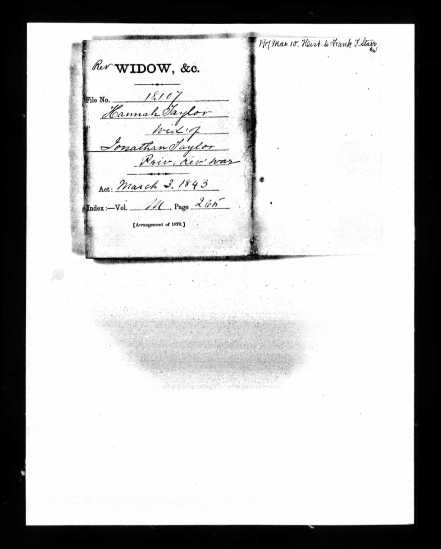 Rev WIDOW, &c.
File No. 18107
Hannah Taylor
Wid. of
Jonathan Taylor
Priv. Rev War
Act: March 3, 1843
Index:—Vol. M, Page 265
[Arrangement of 1870.]
Mar 10. Hist to Frank T. Starr